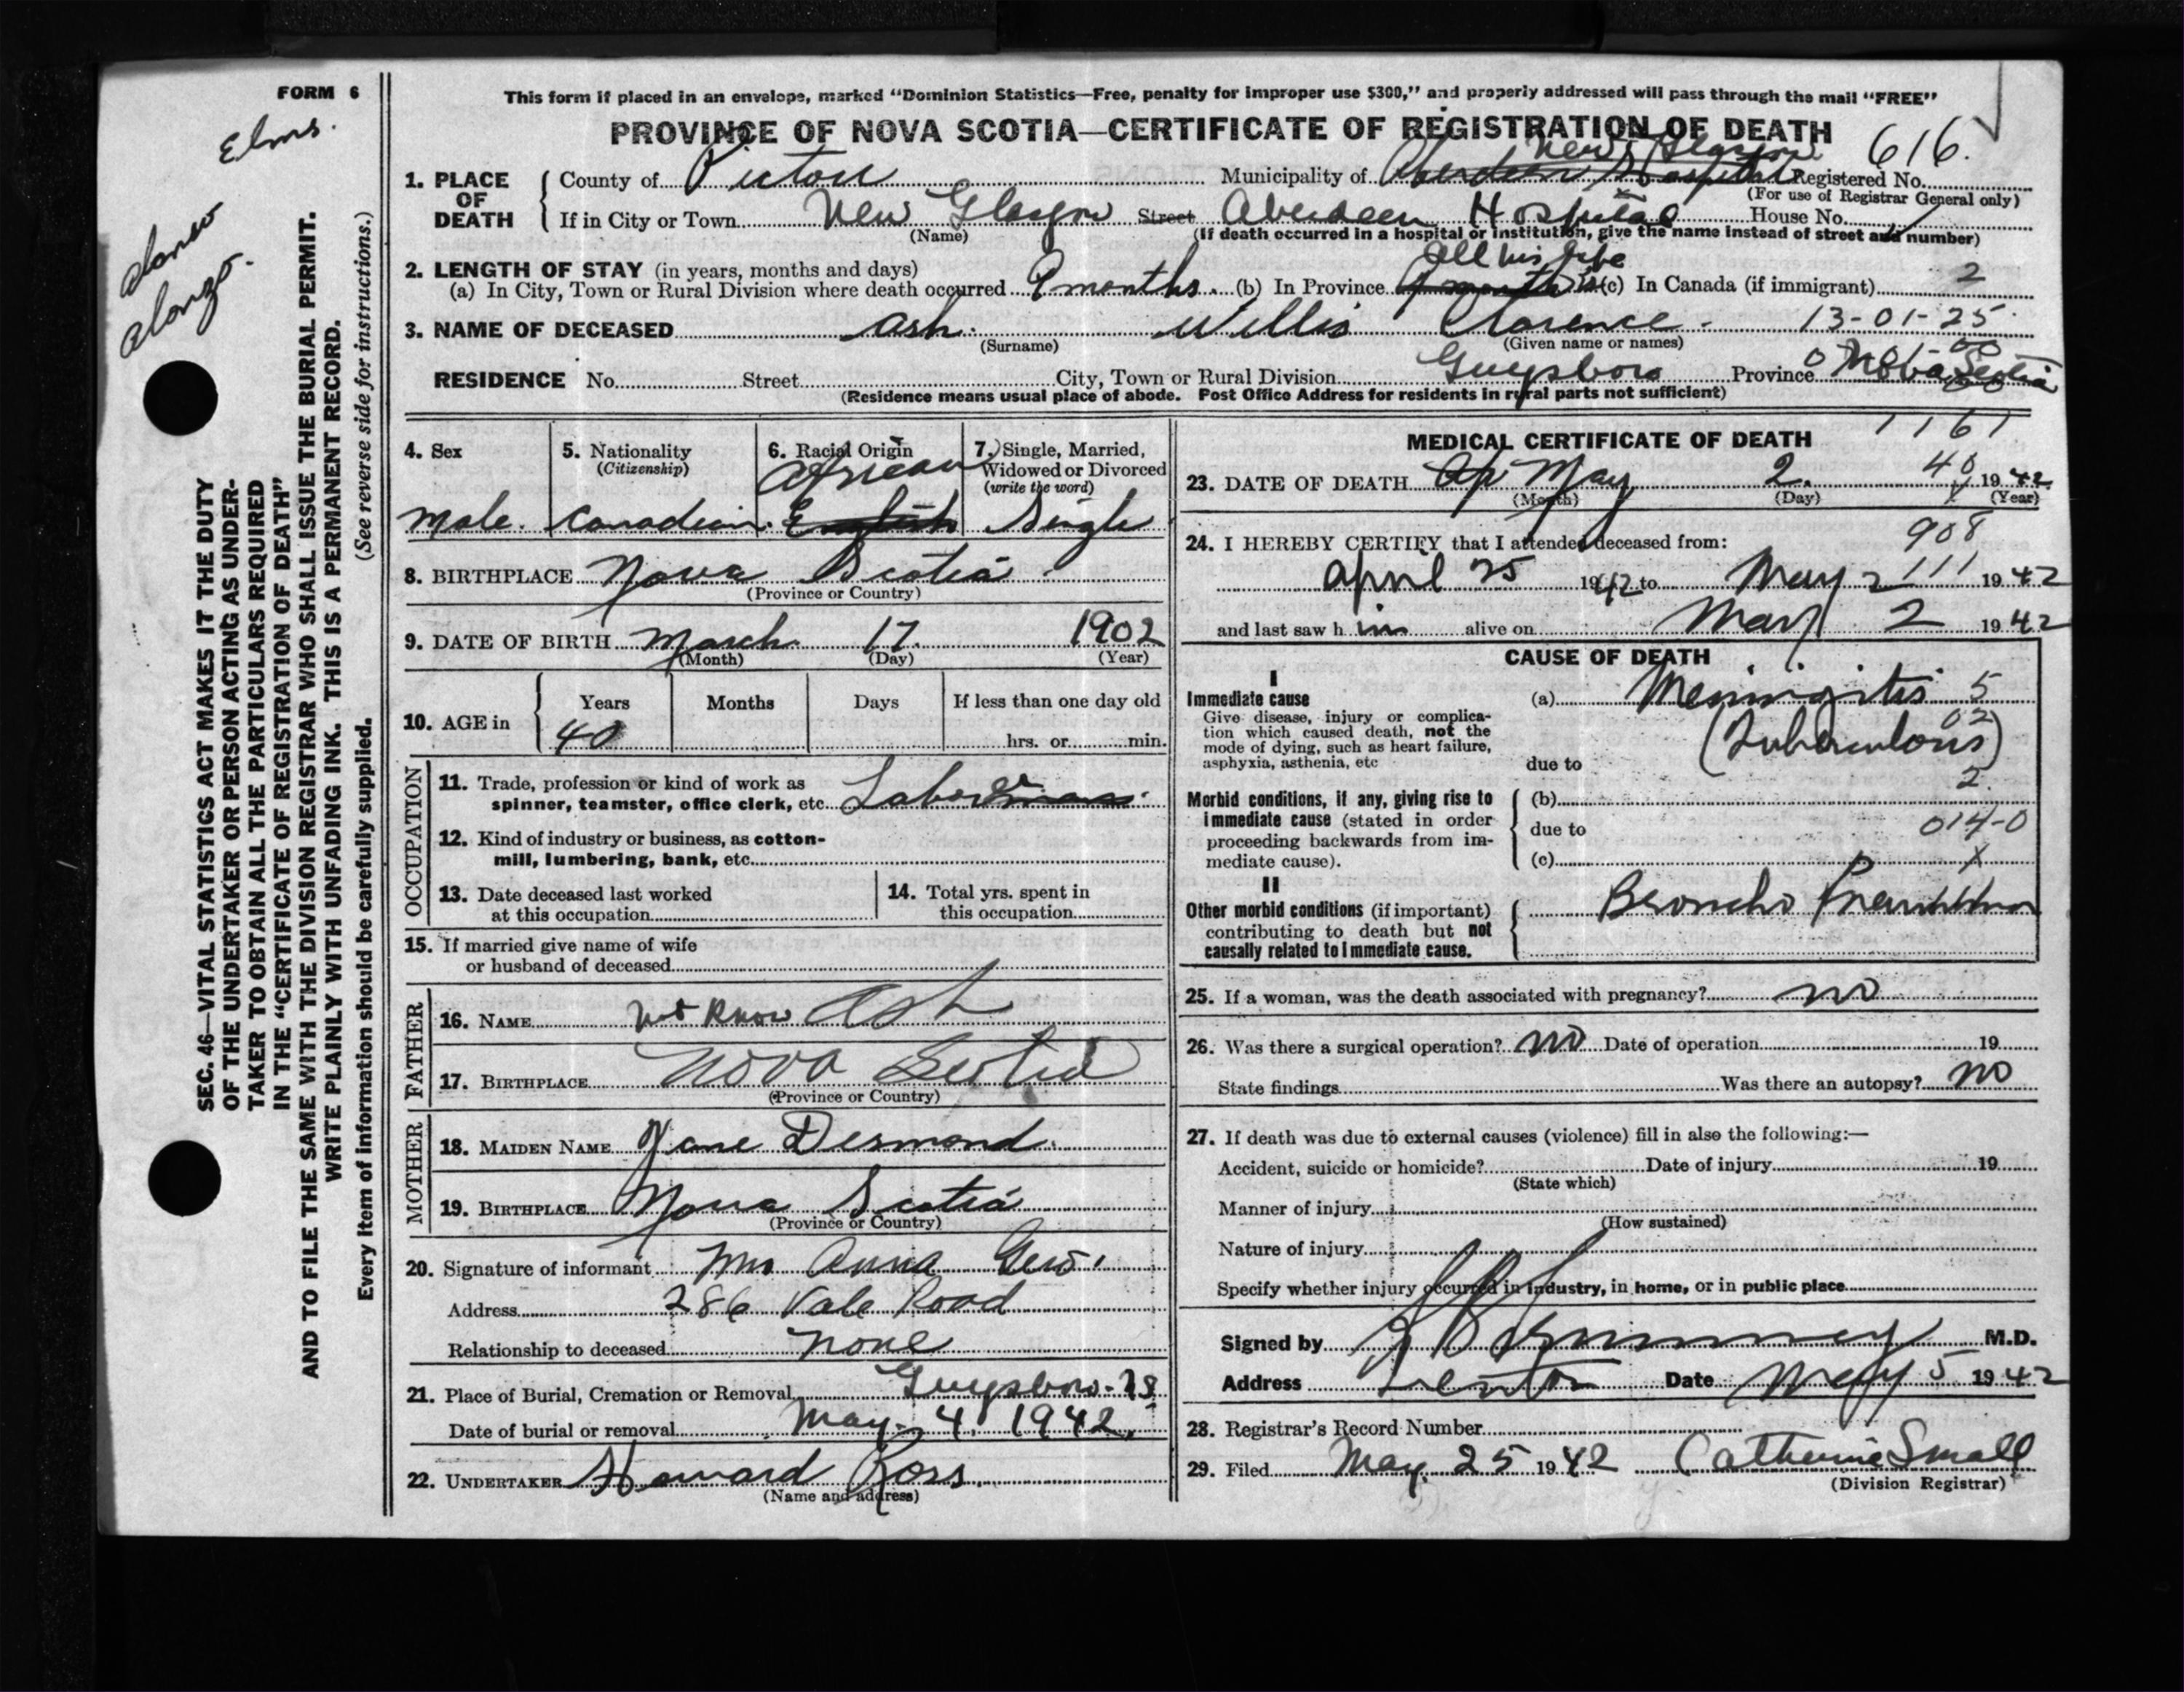 FORM 6
Elms.
Alonzo.
SEC. 46—VITAL STATISTICS ACT MAKES IT THE DUTY
OF THE UNDERTAKER OR PERSON ACTING AS UNDER-
TAKER TO OBTAIN ALL THE PARTICULARS REQUIRED
IN THE "CERTIFICATE OF REGISTRATION OF DEATH"
AND TO FILE THE SAME WITH THE DIVISION REGISTRAR WHO SHALL ISSUE THE BURIAL PERMIT.
WRITE PLAINLY WITH UNFADING INK. THIS IS A PERMANENT RECORD.
Every item of information should be carefully supplied. (See reverse side for instructions.)
This form if placed in an envelope, marked "Dominion Statistics—Free, penalty for improper use $300," and properly addressed will pass through the mail "FREE"
PROVINCE OF NOVA SCOTIA—CERTIFICATE OF REGISTRATION OF DEATH
1. PLACE OF DEATH
County of Pictou Municipality of Aberdeen Hospital New Glasgow Registered No. 616.
(For use of Registrar General only)
If in City or Town New Glasgow Street Aberdeen Hospital House No.
(Name) (If death occurred in a hospital or institution, give the name instead of street and number)
2. LENGTH OF STAY (in years, months and days)
(a) In City, Town or Rural Division where death occurred 9 months. (b) In Province 9 months All his life (c) In Canada (if immigrant) 2
3. NAME OF DECEASED Ash. Willis Clarence - 13-01-25
(Surname) (Given name or names)
RESIDENCE No. Street City, Town or Rural Division Guysboro Province Nova Scotia
(Residence means usual place of abode. Post Office Address for residents in rural parts not sufficient)
4. Sex 5. Nationality (Citizenship) 6. Racial Origin 7. Single, Married, Widowed or Divorced (write the word)
African
Male. Canadian. English Single
8. BIRTHPLACE Nova Scotia
(Province or Country)
9. DATE OF BIRTH March 17. 1902
(Month) (Day) (Year)
10. AGE in Years Months Days If less than one day old
40 hrs. or min.
OCCUPATION
11. Trade, profession or kind of work as
spinner, teamster, office clerk, etc. Laborer
12. Kind of industry or business, as cotton-
mill, lumbering, bank, etc.
13. Date deceased last worked
at this occupation
14. Total yrs. spent in
this occupation
15. If married give name of wife
or husband of deceased
FATHER
16. NAME not know Ash
17. BIRTHPLACE Nova Scotia
(Province or Country)
MOTHER
18. MAIDEN NAME Jane Desmond.
19. BIRTHPLACE Nova Scotia
(Province or Country)
20. Signature of informant Mrs Anna
Address 286 Vale Road
Relationship to deceased none
21. Place of Burial, Cremation or Removal Guysboro - NS
Date of burial or removal May. 4. 1942.
22. UNDERTAKER Howard Ross.
(Name and address)
1161
MEDICAL CERTIFICATE OF DEATH
40
23. DATE OF DEATH Ap May 2. 1942
(Month) (Day) (Year)
908
24. I HEREBY CERTIFY that I attended deceased from:
111
April 25 1942 to May 2 1942
and last saw him alive on May 2 1942
CAUSE OF DEATH
I
Immediate cause (a) Meningitis 5
Give disease, injury or complica-
tion which caused death, not the
mode of dying, such as heart failure,
asphyxia, asthenia, etc
02
(Tuberculous)
due to
2.
Morbid conditions, if any, giving rise to
immediate cause (stated in order
proceeding backwards from im-
mediate cause).
(b)
due to 014-0
(c) X
II
Other morbid conditions (if important)
contributing to death but not
causally related to immediate cause.
Broncho Pneumonia
25. If a woman, was the death associated with pregnancy? no
26. Was there a surgical operation? no Date of operation 19
State findings Was there an autopsy? no
27. If death was due to external causes (violence) fill in also the following:—
Accident, suicide or homicide? Date of injury 19
(State which)
Manner of injury
(How sustained)
Nature of injury
Specify whether injury occurred in industry, in home, or in public place
Signed by M.D.
Address Trenton Date May 5 1942
28. Registrar's Record Number
29. Filed May. 25 1942 Catherine Small
(Division Registrar)